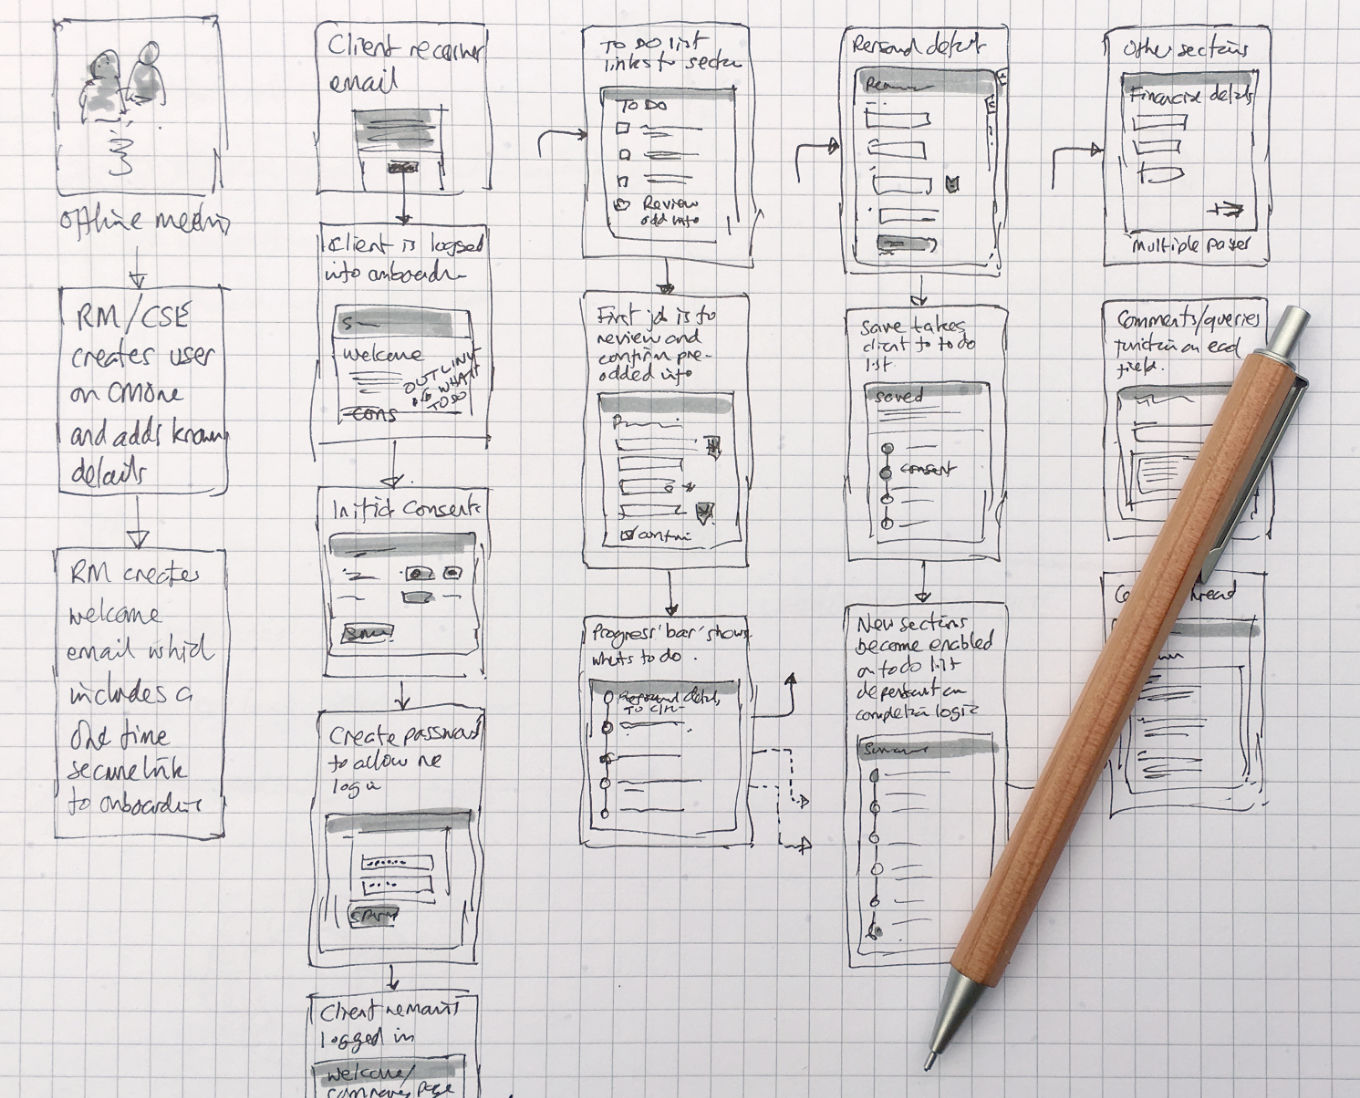 offline meeting
RM/CSE
creates user
on CMORE
and adds known
details
RM creates
welcome
email which
includes a
one time
secure link
to onboarding
Client receives
email
Client is logged
into onboardin
Welcome
OUTLINE
OF WHAT
TO DO
cons
Initial Consents
Create password
to allow re
login
Client remains
logged in
welcome/
company page
TO DO list
links to section
TO DO
Review
add info
First job is to
review and
confirm pre-
added info
Progress 'bar' shows
whats to do.
Personal details
Personal detail
Save takes
client to to do
list
saved
consent
New sections
become enabled
on to do list
dependant on
completion logic
Other sections
Financial details
multiple pages
Comments/queries
function on each
field.